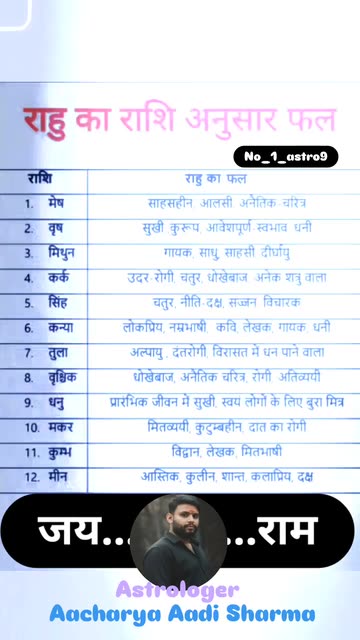 राहु का राशि अनुसार फल
No_1_astro9
राशि राहु का फल
1. मेष साहसहीन, आलसी, अनैतिक-चरित्र
2. वृष सुखी, कुरूप, आवेशपूर्ण-स्वभाव, धनी
3. मिथुन गायक, साधु, साहसी, दीर्घायु
4. कर्क उदर-रोगी, चतुर, धोखेबाज, अनेक शत्रु वाला
5. सिंह चतुर, नीति-दक्ष, सज्जन, विचारक
6. कन्या लोकप्रिय, नम्रभाषी, कवि, लेखक, गायक, धनी
7. तुला अल्पायु, दंतरोगी, विरासत में धन पाने वाला
8. वृश्चिक धोखेबाज, अनैतिक चरित्र, रोगी, अतिव्ययी
9. धनु प्रारंभिक जीवन में सुखी, स्वयं लोगों के लिए बुरा मित्र
10. मकर मितव्ययी, कुटुम्बहीन, दांत का रोगी
11. कुम्भ विद्वान, लेखक, मितभाषी
12. मीन आस्तिक, कुलीन, शान्त, कलाप्रिय, दक्ष
जय... ...राम
Astrologer
Aacharya Aadi Sharma